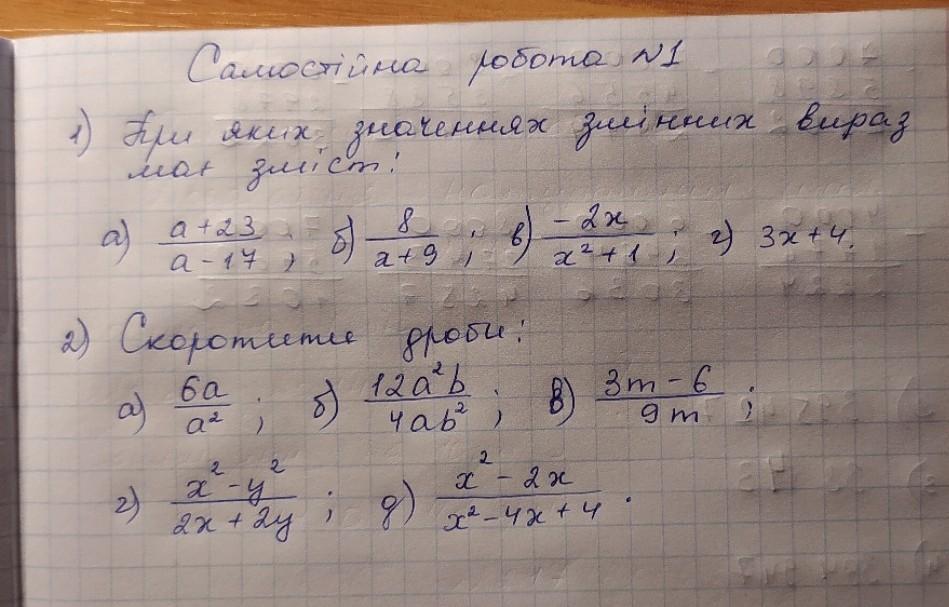 Самостійна робота №1
1) При яких значеннях змінних вираз
має зміст:
а) \frac{a+23}{a-17}; б) \frac{8}{x+9}; в) \frac{-2x}{x^2+1}; г) 3x+4.
2) Скоротити дроби:
а) \frac{6a}{a^2}; б) \frac{12a^2b}{4ab^2}; в) \frac{3m-6}{9m};
г) \frac{x^2-y^2}{2x+2y}; д) \frac{x^2-2x}{x^2-4x+4}.